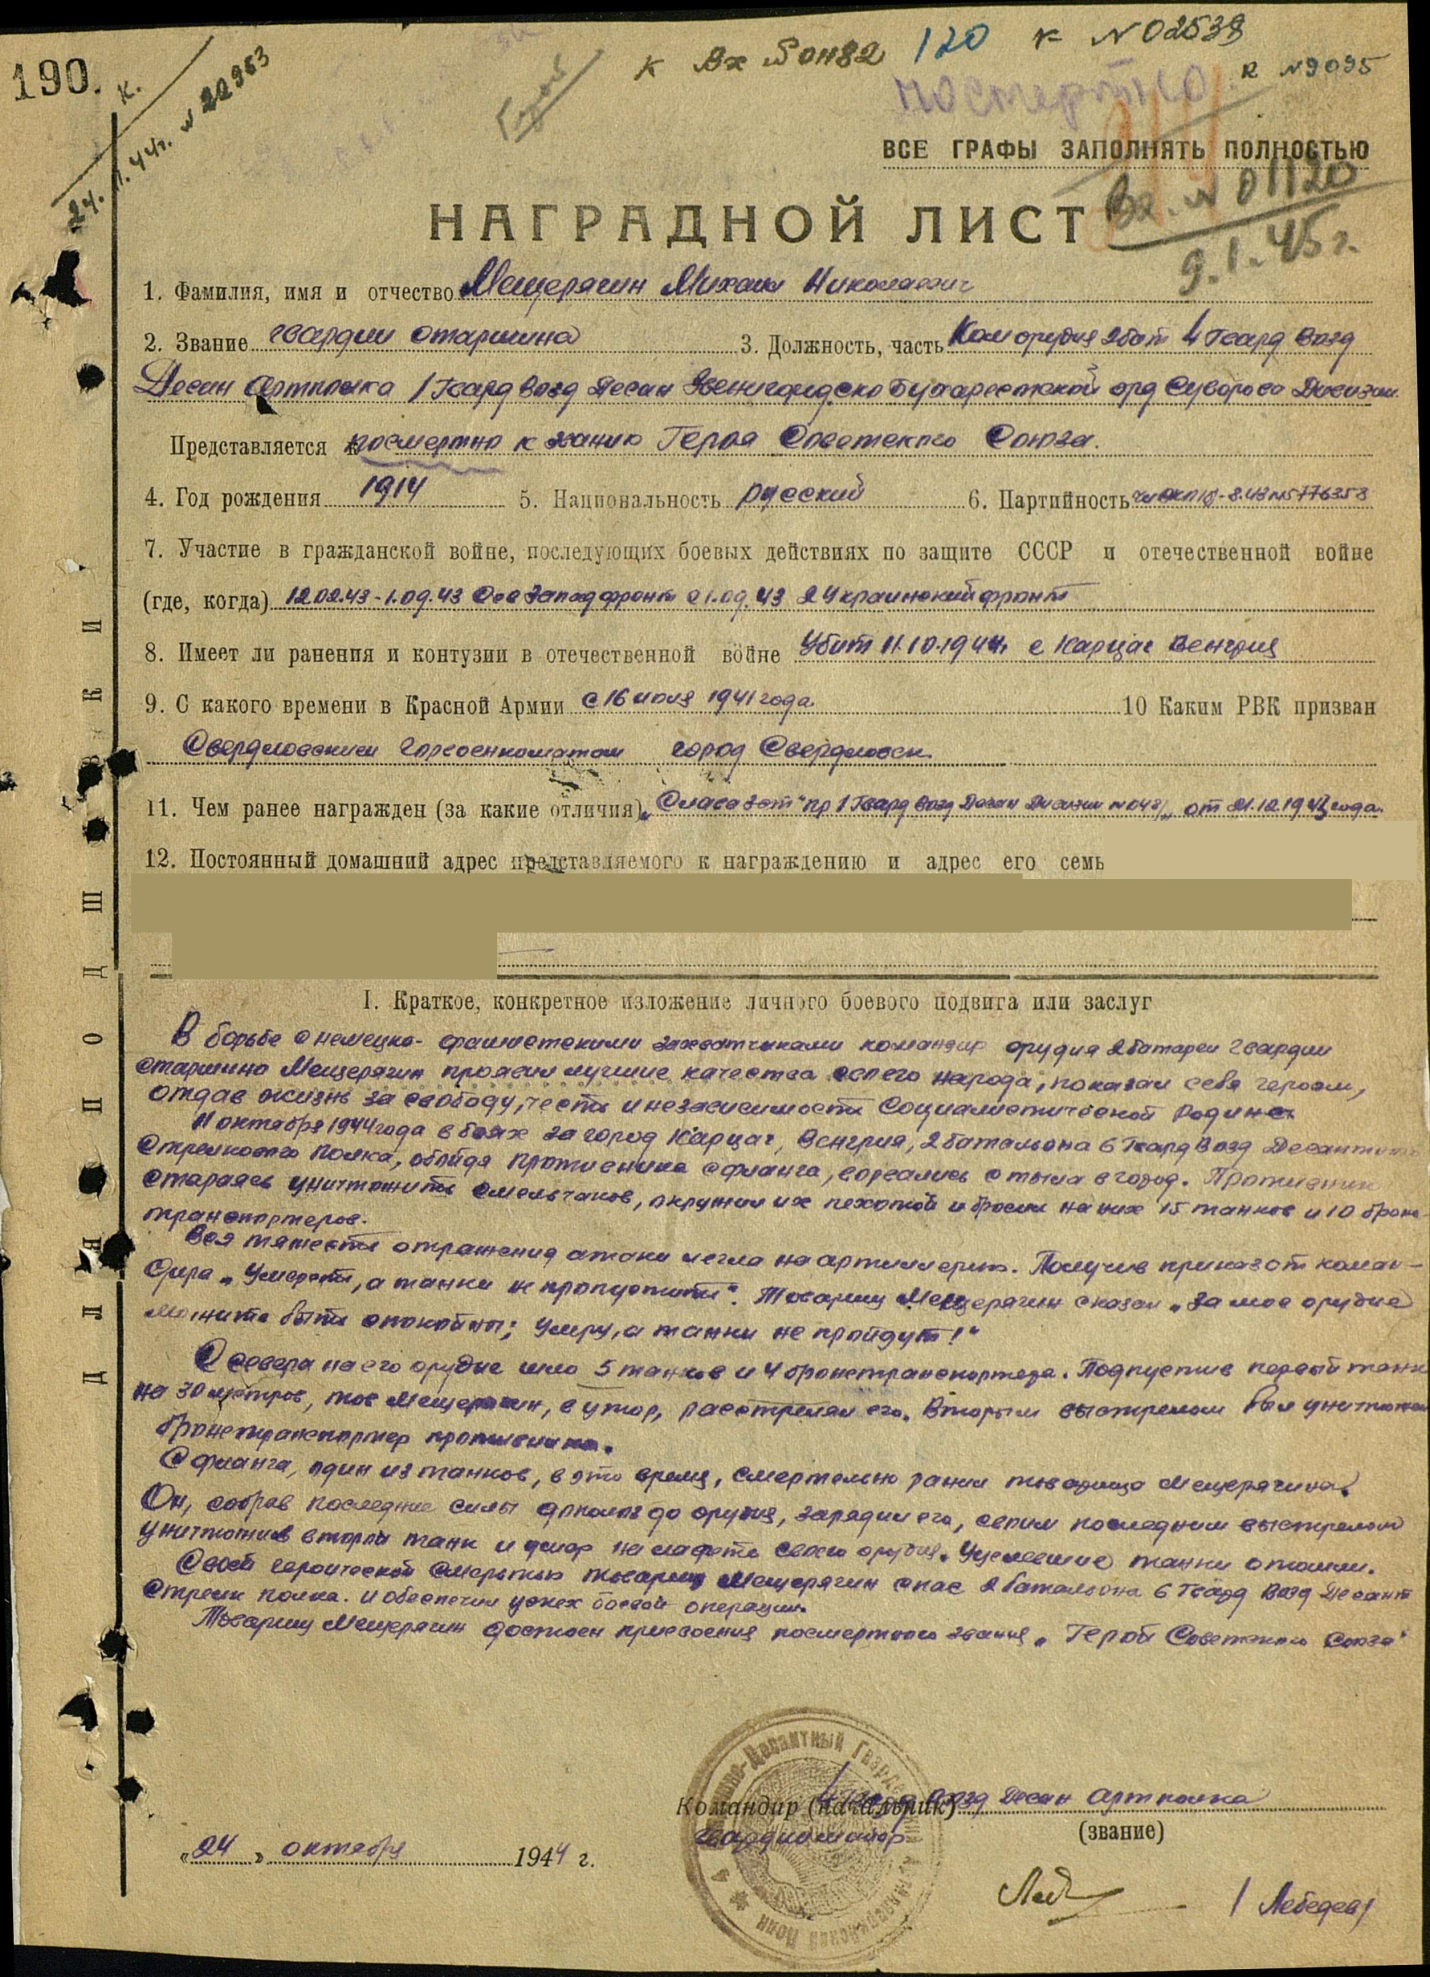 190.
К.
24.11.44г. N 22963
Герой
К Вх N 01182 120 К N 02539
К N 9095
посмертно
ВСЕ ГРАФЫ ЗАПОЛНЯТЬ ПОЛНОСТЬЮ
Вх. N 01120
9.1.45г.
НАГРАДНОЙ ЛИСТ
1. Фамилия, имя и отчество Мещерягин Михаил Николаевич
2. Звание гвардии старшина 3. Должность, часть Ком орудия 2 бат 4 Гвард Возд
Десан Артполка 1 Гвард Возд Десан Звенигородско Бухарестской орд Суворова Дивизии
Представляется к посмертно к званию Героя Советского Союза.
4. Год рождения 1914 5. Национальность русский 6. Партийность
7. Участие в гражданской войне, последующих боевых действиях по защите СССР и отечественной войне
(где, когда) 12.02.43-1.09.43 Сев Запад фронт с 1.09.43 2 Украинский фронт
8. Имеет ли ранения и контузии в отечественной войне Убит 11.10.1944г с Карцаг Венгрия
9. С какого времени в Красной Армии с 16 июля 1941 года 10 Каким РВК призван
Свердловским Горвоенкоматом город Свердловск
11. Чем ранее награжден (за какие отличия) „Слава 3 ст" пр 1 Гвард Возд Десан Дивизии N 048/ от 21.12.1943 года.
12. Постоянный домашний адрес представляемого к награждению и адрес его семь
ДЛЯ ПОДШИВКИ
I. Краткое, конкретное изложение личного боевого подвига или заслуг
В борьбе с немецко-фашистскими захватчиками командир орудия 2 батареи гвардии
старшина Мещерягин проявил лучшие качества своего народа, показал себя героем,
отдав жизнь за свободу, честь и независимость Социалистической Родины
11 октября 1944 года в боях за город Карцаг, Венгрия, 2 батальона 6 Гвард Возд Десантного
Стрелкового Полка, обойдя противника с фланга, ворвались с тыла в город. Противник
стараясь уничтожить смельчаков, окружил их пехотой и бросил на них 15 танков и 10 броне-
транспортеров.
Вся тяжесть отражения атаки легла на артиллерию. Получив приказ от коман-
дира „Умереть, а танки не пропустить". Товарищ Мещерягин сказал „За мое орудие
можите быть спокойны; умру, а танки не пройдут!"
С севера на его орудие шло 5 танков и 4 бронетранспортера. Подпустив первый танк
на 30 метров, тов Мещерягин, в упор, расстрелял его. Вторым выстрелом был уничтожен
бронетранспортер противника.
С фланга, один из танков, в это время, смертельно ранил товарища Мещерягина.
Он, собрав последние силы дополз до орудия, зарядил его, своим последним выстрелом
уничтожив второй танк и умер на лафете своего орудия. Уцелевшие танки отошли.
Своей героической смертью товарищ Мещерягин спас 2 батальона 6 Гвард Возд Десант
Стрелк полка. и обеспечил успех боевой операции.
Товарищ Мещерягин достоен присвоения посмертного звания „Герой Советского Союза"
Командир (начальник) 4 Гвард Возд Десан Артполка
Гвардии майор (звание)
„24„ октября 1944 г.
/Лебедев/